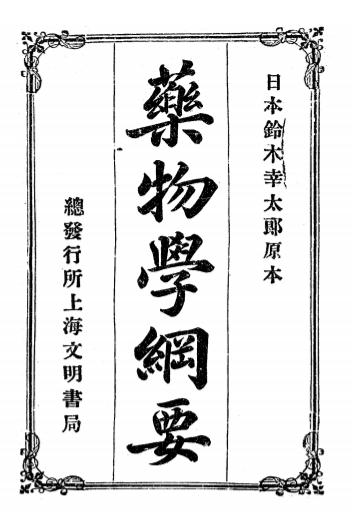 日本鈴木幸太郎原本
藥物學綱要
總發行所上海文明書局